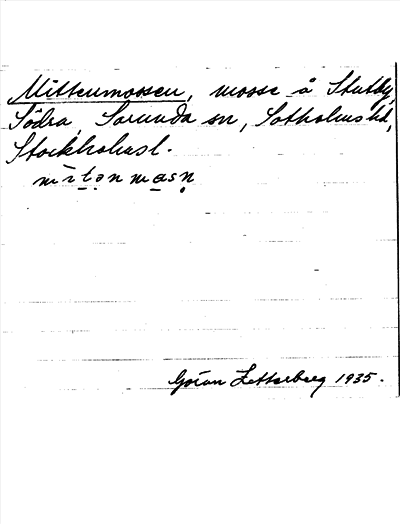 Mittenmossen, mosse å Stutby,
Södra, Sorunda sn, Sotholms hd,
Stockholmsl.
mìtənmasn̥
Göran Zetterberg 1935.